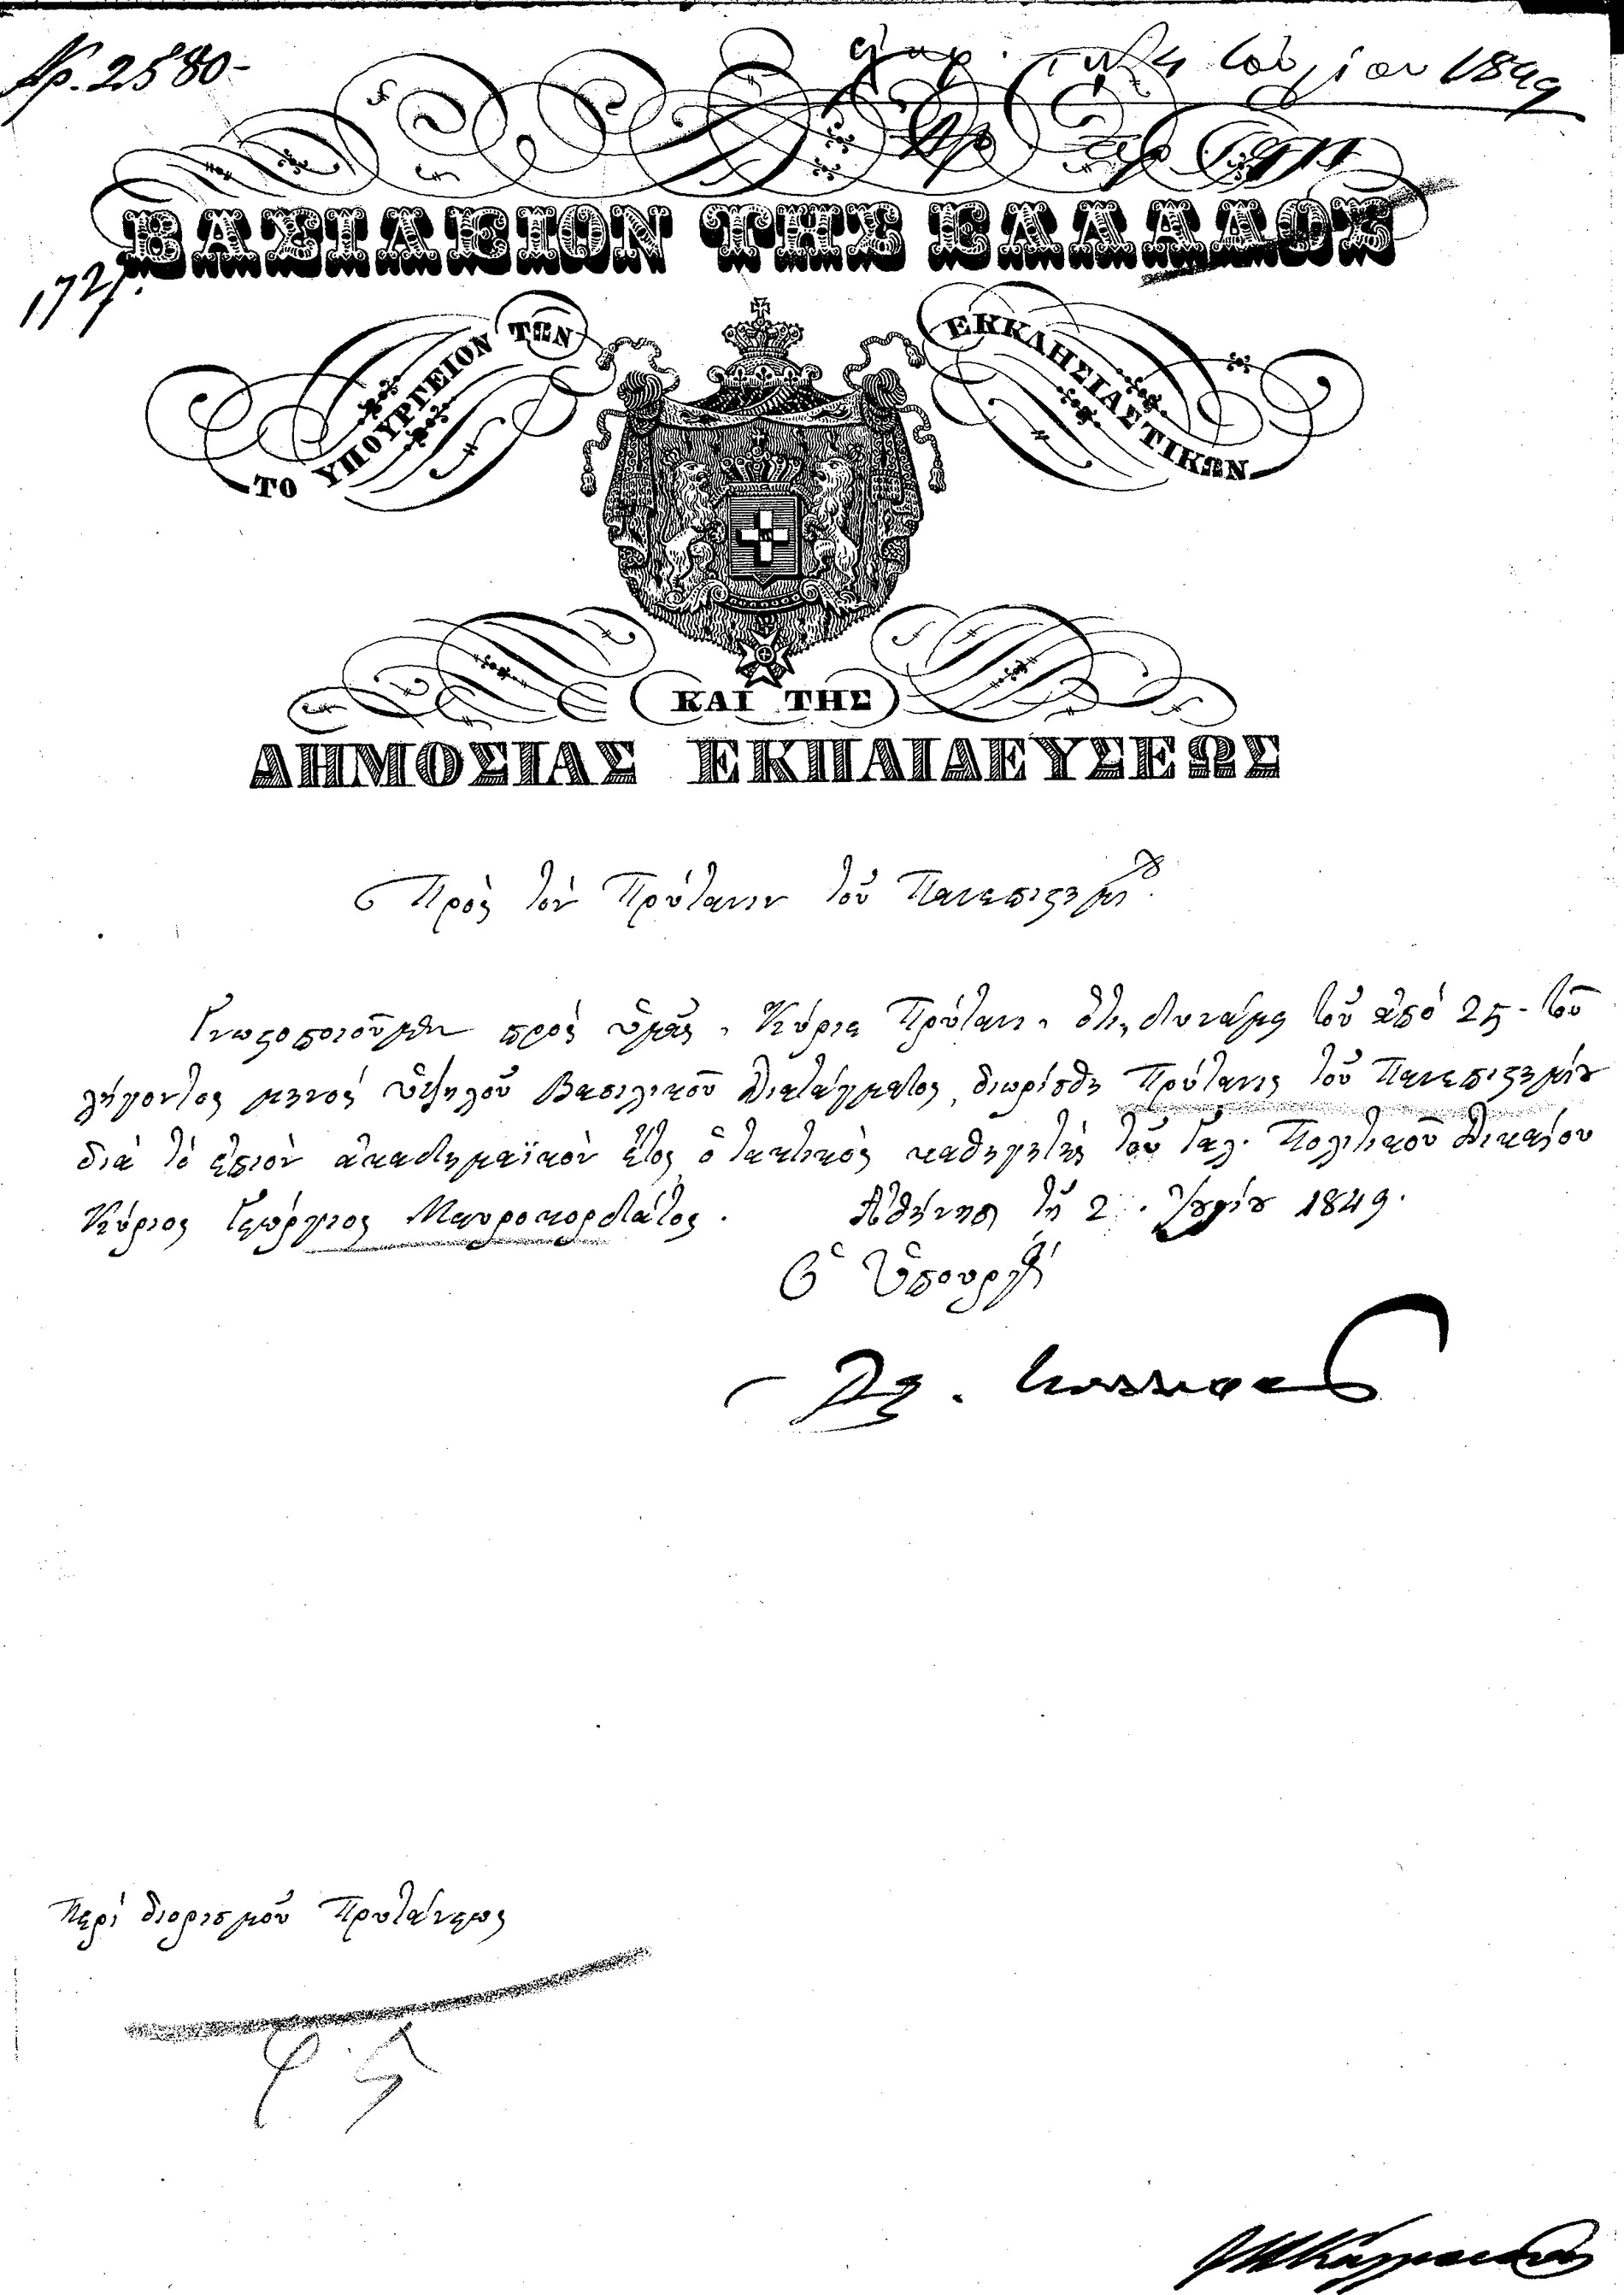 Αρ. 2580-
1849
ΒΑΣΙΛΕΙΟΝ ΤΗΣ ΕΛΛΑΔΟΣ
1727.
ΤΟ ΥΠΟΥΡΓΕΙΟΝ ΤΩΝ
ΕΚΚΛΗΣΙΑΣΤΙΚΩΝ
ΚΑΙ ΤΗΣ
ΔΗΜΟΣΙΑΣ ΕΚΠΑΙΔΕΥΣΕΩΣ
Πρὸς τὸν Πρύτανιν τοῦ Πανεπιστημίου
Γνωστοποιοῦμεν πρὸς ὑμᾶς, Κύριε Πρύτανι, ὅτι, δυνάμει τοῦ ἀπὸ 25 - τοῦ
λήγοντος μηνὸς ὑψηλοῦ Βασιλικοῦ Διατάγματος, διωρίσθη Πρύτανις τοῦ Πανεπιστημίου
διὰ τὸ ἐπιὸν ἀκαδημαϊκὸν ἔτος ὁ τακτικὸς καθηγητὴς τοῦ Γαλ. Πολιτικοῦ Δικαίου
Κύριος Γεώργιος Μαυροκορδάτος. Ἀθήνησι τῇ 2 1849.
Ὁ Ὑπουργὸς
Περὶ διορισμοῦ Πρυτάνεως